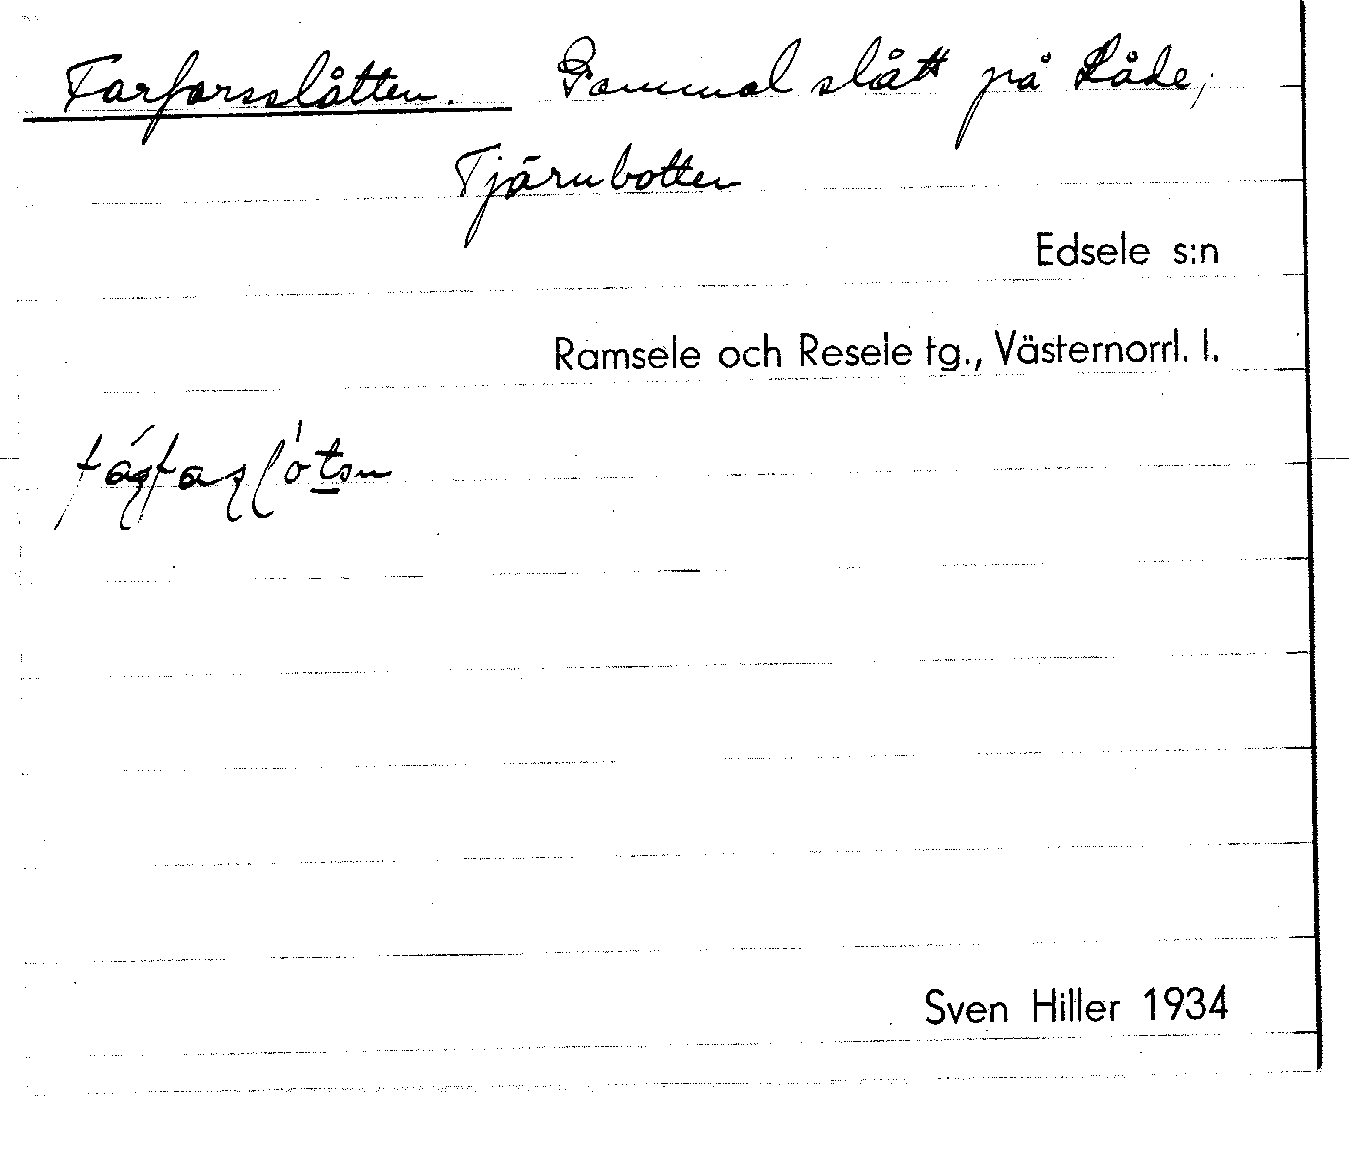 Farfarsslåtten. Gammal slått på Råde,
Tjärnbotten
Edsele s:n
Ramsele och Resele tg., Västernorrl. l.
Sven Hiller 1934